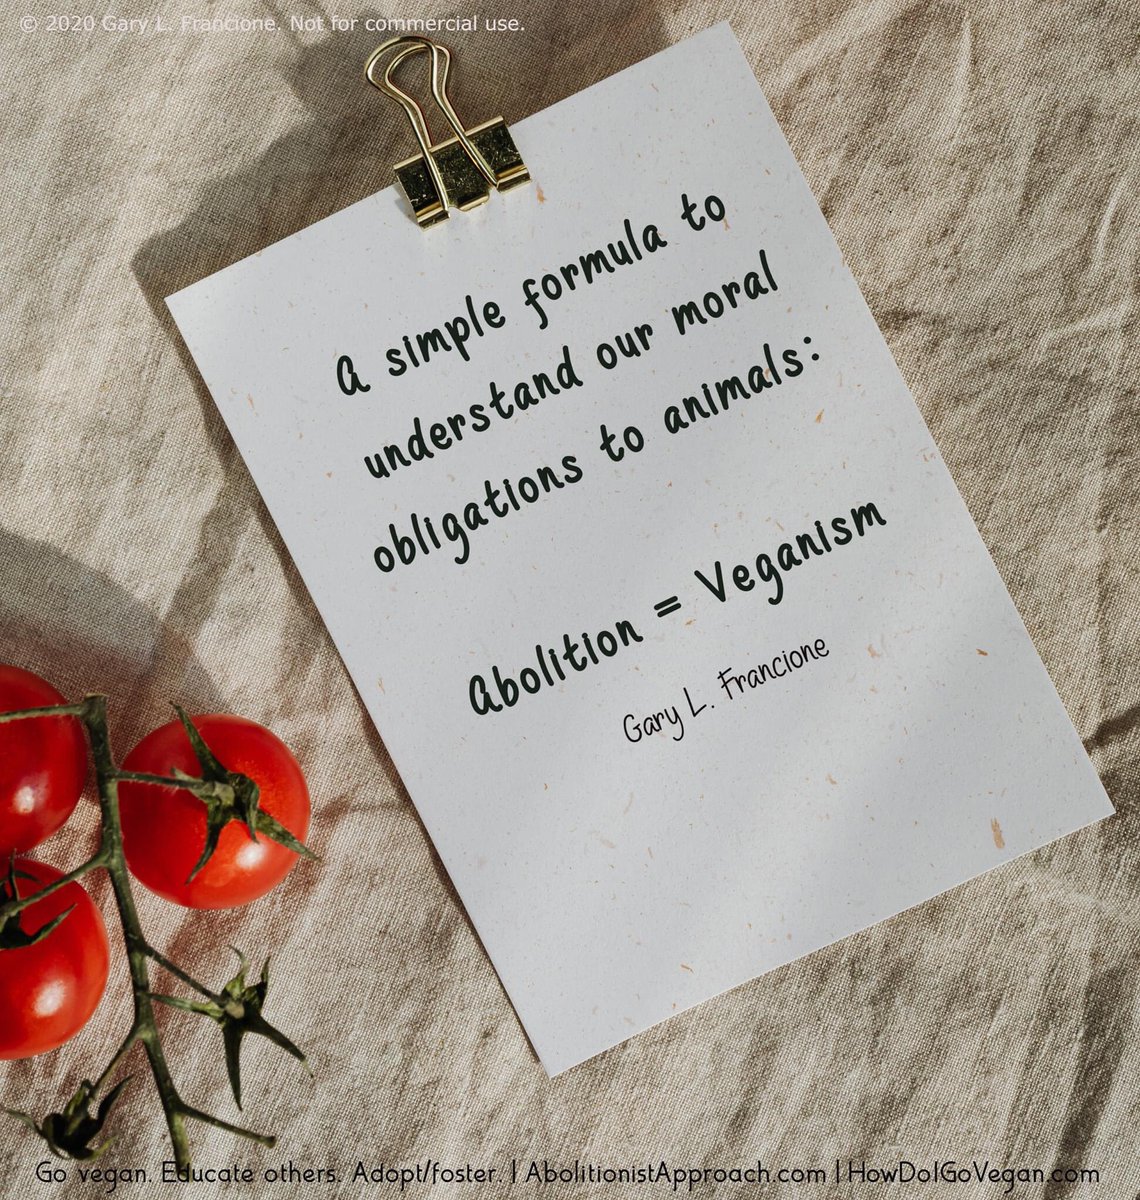 © 2020 Gary L. Francione. Not for commercial use.
A simple formula to
understand our moral
obligations to animals:
Abolition = Veganism
Gary L. Francione
Go vegan. Educate others. Adopt/foster. | AbolitionistApproach.com | HowDoIGoVegan.com